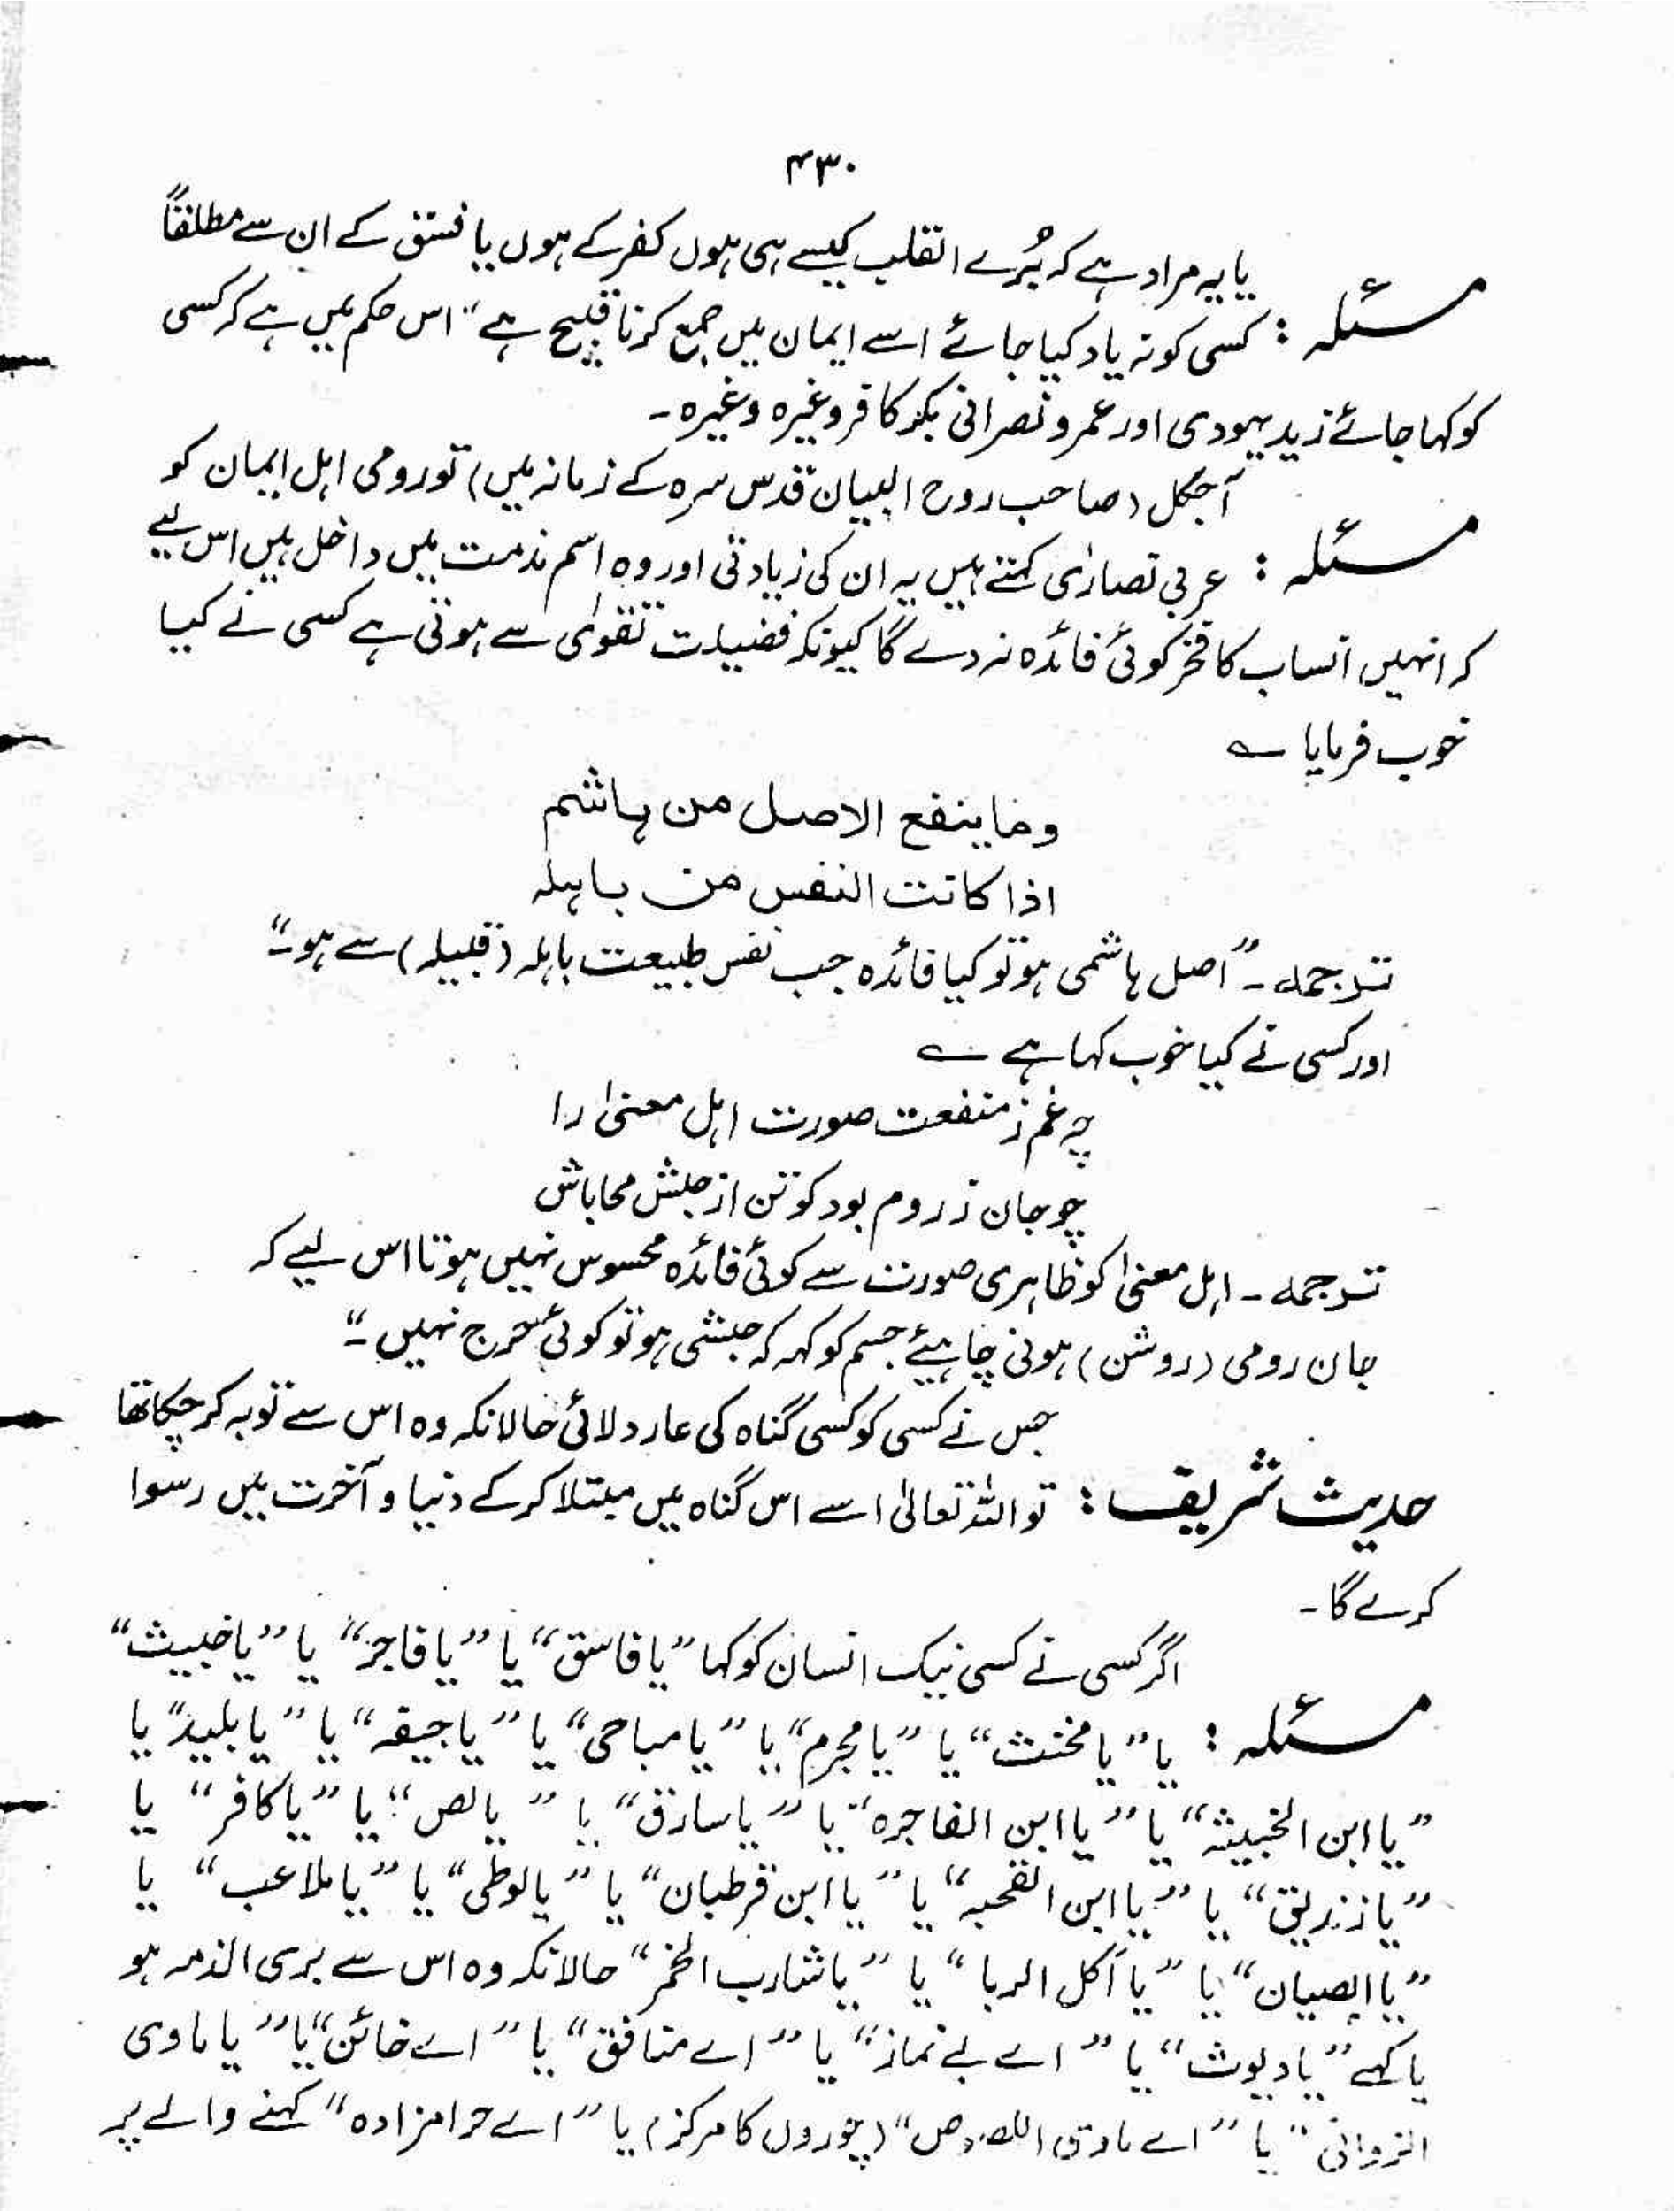 ۴۳۰
یا یہ مراد ہے کہ بُرے القلب کیسے ہی ہوں کفر کے ہوں یا فسق کے ان سے مطلقاً
مسئلہ : کسی کو نہ یاد کیا جائے اسے ایمان میں جمع کرنا قبیح ہے" اس حکم میں ہے کہ کسی
کو کہا جائے زید یہودی اور عمرو نصرانی بکر کافر وغیرہ وغیرہ۔
آجکل (صاحب روح البیان قدس سرہ کے زمانہ میں) تو رومی اہل ایمان کو
مسئلہ : عربی نصارٰی کہتے ہیں یہ ان کی زیادتی اور وہ اسم مذمت میں داخل ہیں اس لیے
کہ انہیں انساب کا فخر کوئی فائدہ نہ دے گا کیونکہ فضیلت تقوٰی سے ہوتی ہے کسی نے کیا
خوب فرمایا ؎
وما ینفع الاصل من ہاشم
اذا کانت النفس من باہلہ
ترجمہ۔ "اصل ہاشمی ہو تو کیا فائدہ جب نفس طبیعت باہلہ (قبیلہ) سے ہو۔"
اور کسی نے کیا خوب کہا ہے ؎
چہ غم ز منفعت صورت اہل معنیٰ را
چو جان ز روم بود کو تن از حبش مے باش
ترجمہ۔ اہل معنیٰ کو ظاہری صورت سے کوئی فائدہ محسوس نہیں ہوتا اس لیے کہ
جان رومی (روشن) ہونی چاہیئے جسم کو کہہ کہ حبشی ہو تو کوئی حرج نہیں۔"
جس نے کسی کو کسی گناہ کی عار دلائی حالانکہ وہ اس سے توبہ کر چکا تھا
حدیث شریف : تو اللہ تعالیٰ اسے اس گناہ میں مبتلا کر کے دنیا و آخرت میں رسوا
کرے گا۔
اگر کسی نے کسی نیک انسان کو کہا "یا فاسق" یا "یا فاجر" یا "یا خبیث"
مسئلہ : یا "یا مخنث" یا "یا مجرم" یا "یا مباحی" یا "یا جیفہ" یا "یا بلید" یا
"یا ابن الخبیثہ" یا "یا ابن الفاجرہ" یا "یا سارق" یا "یا لص" یا "یا کافر" یا
"یا زندیق" یا "یا ابن القحبہ" یا "یا ابن قرطبان" یا "یا لوطی" یا "یا ملاعب" یا
"یا الصبیان" یا "یا آکل الربا" یا "یا شارب الخمر" حالانکہ وہ اس سے بری الذمہ ہو
یا کہے "یا دیوث" یا "اے بے نماز" یا "اے منافق" یا "اے خائن" یا "یا ماوی
الزوانی" یا "اے ماوی اللصوص" (چوروں کا مرکز) یا "اے حرامزادہ" کہنے والے پر